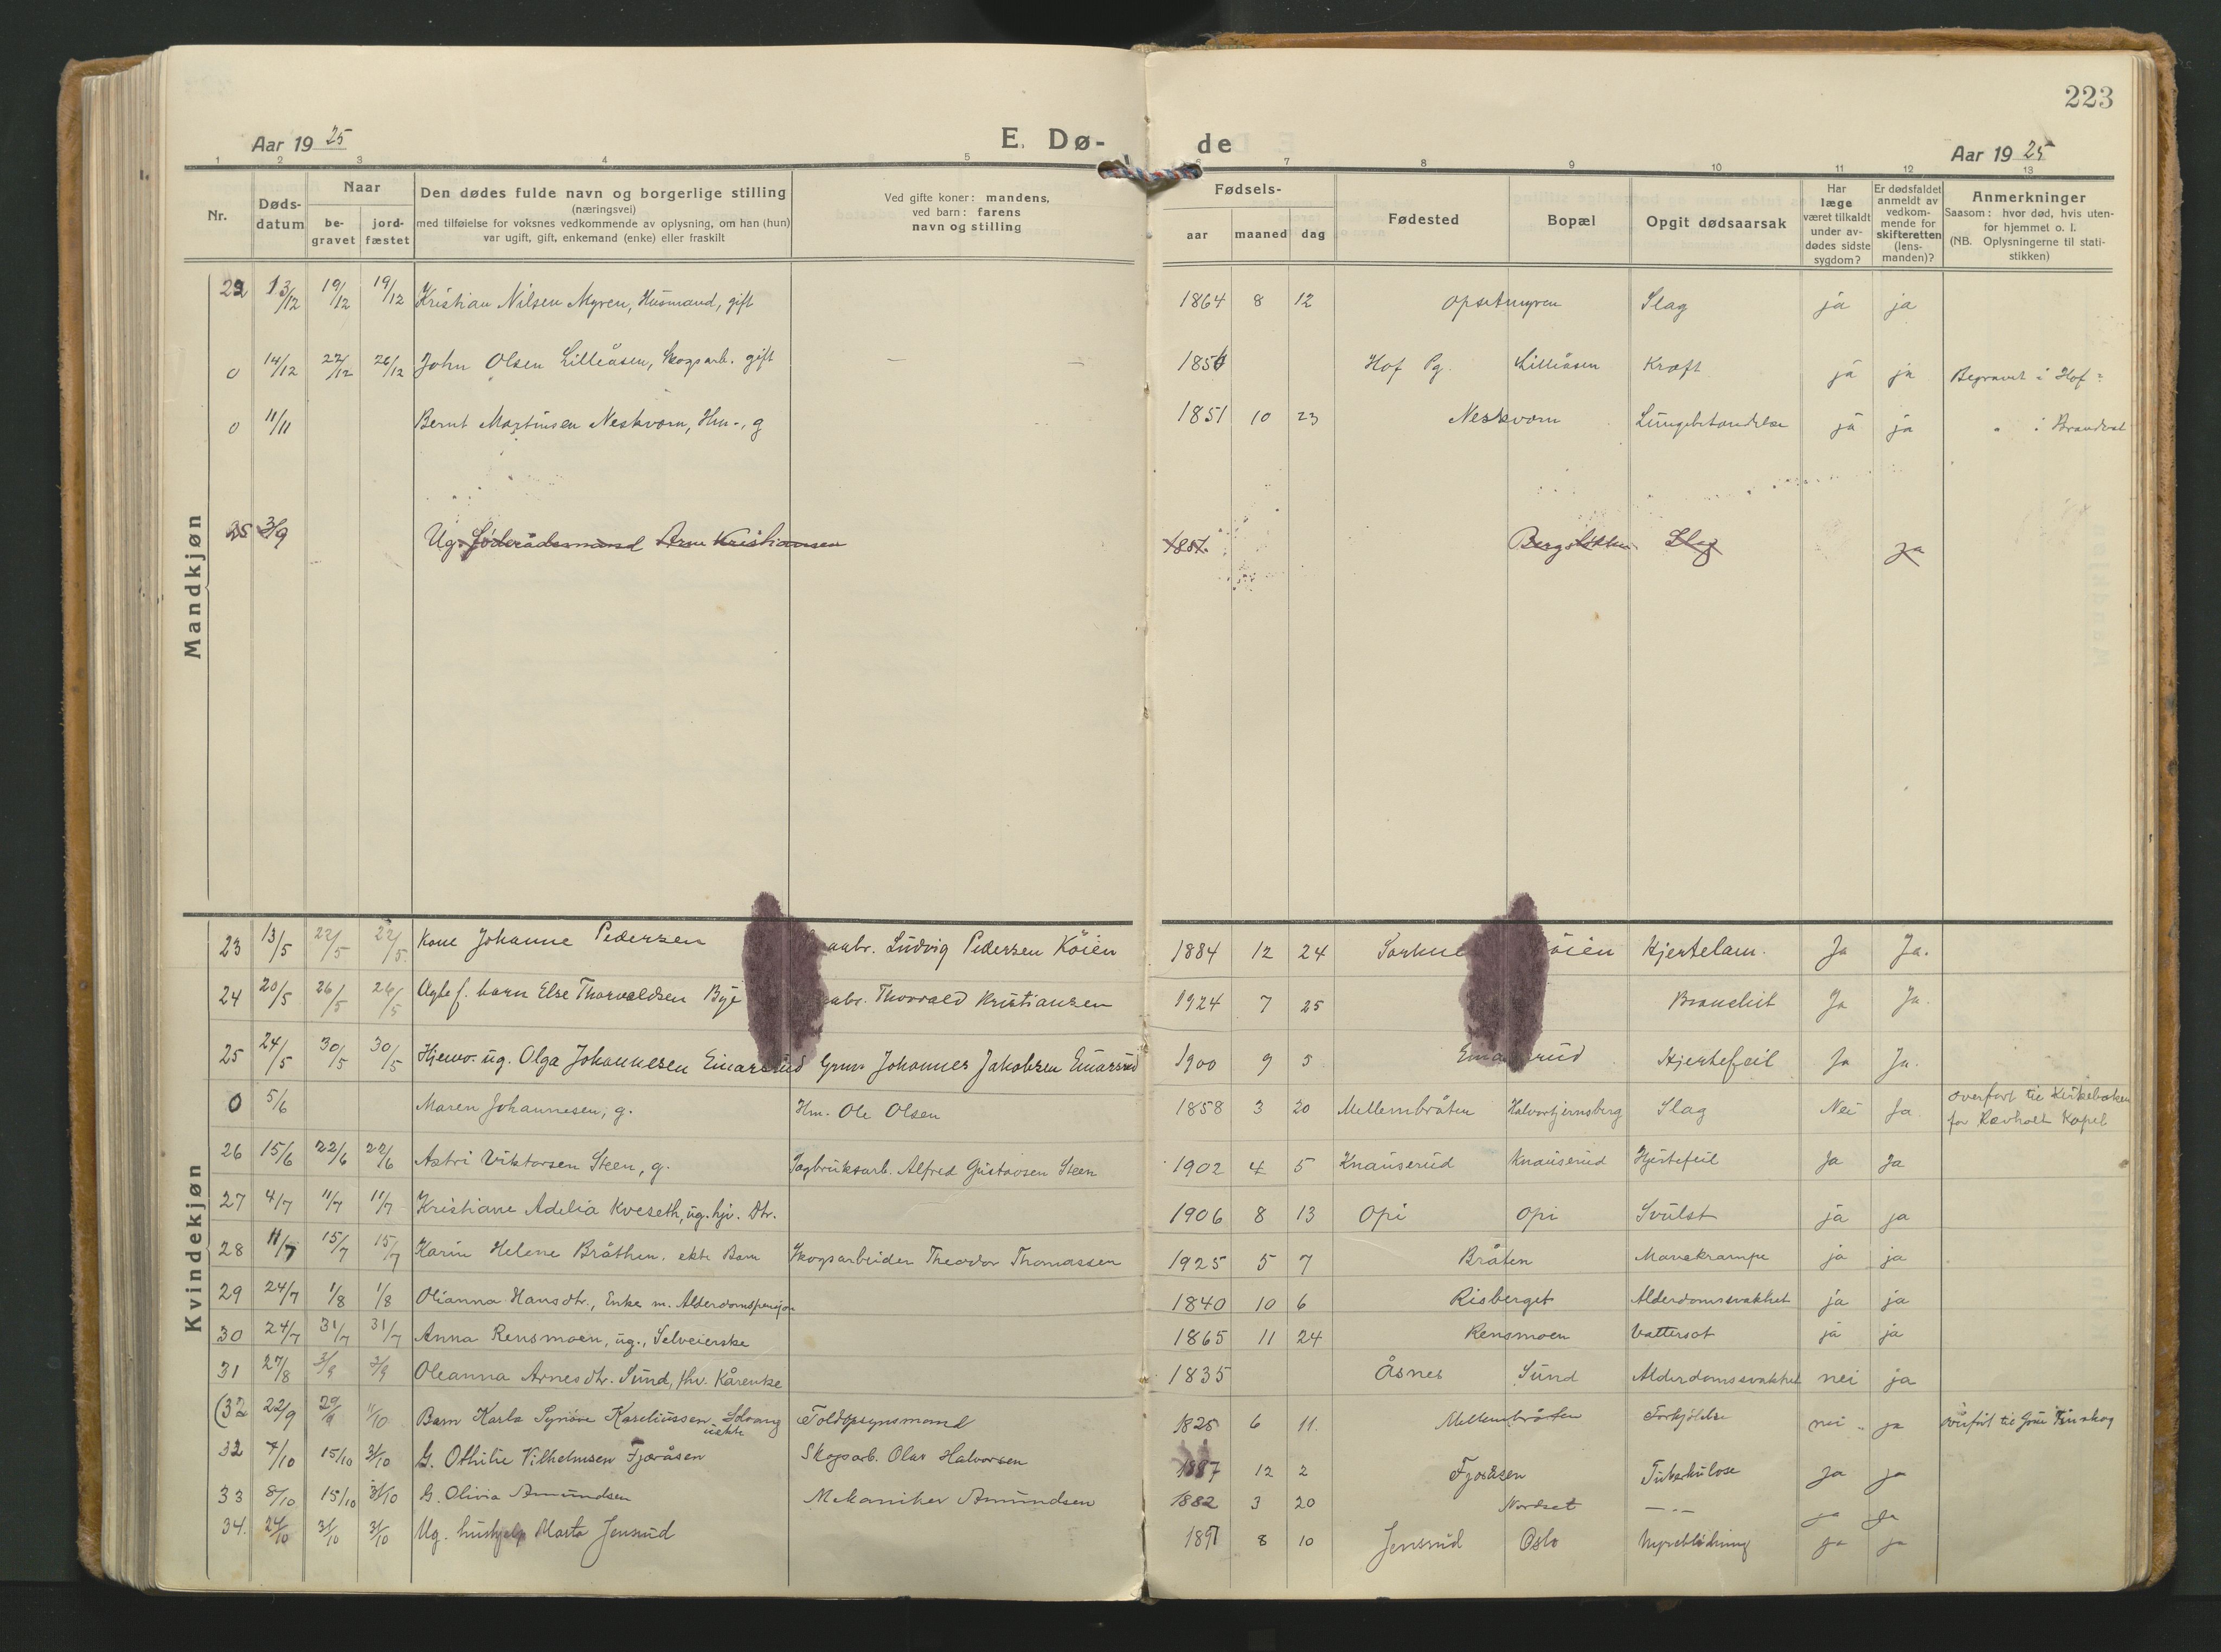 223
Aar 1925 E. Dø- de Aar 1925
1 2 3 4 5 6 7 8 9 10 11 12 13
Nr.
Døds-
datum
Naar
be-
gravet
jord-
fæstet
Den dødes fulde navn og borgerlige stilling
(næringsvei)
med tilføielse for voksnes vedkommende av oplysning, om han (hun)
var ugift, gift, enkemand (enke) eller fraskilt
Ved gifte koner: mandens,
ved barn: farens
navn og stilling
Fødsels-
aar maaned dag
Fødested
Bopæl
Opgit dødsaarsak
Har
læge
været tilkaldt
under av-
dødes sidste
sygdom?
Er dødsfaldet
anmeldt av
vedkom-
mende for
skifteretten
(lens-
manden)?
Anmerkninger
Saasom: hvor død, hvis uten-
for hjemmet o. l.
(NB. Oplysningerne til stati-
stikken)
Mandkjøn
22 13/12 19/12 19/12 Kristian Nilsen Myren, Husmand, gift 1864 8 12 Opsetmyren Slag ja ja
0 14/12 22/12 26/12 John Olsen Lilleåsen, Skogsarb. gift — — 1854 Hof Pg. Lilleåsen Kræft ja ja Begravet i Hof
0 11/11 Bernt Martinsen Neskvorn, Hm., g 1851 10 23 Neskvorn Lungebetændelse ja ja " i Brandval
25 3/9 Ug. Føderådsmand Arne Kristiansen Slag ja
Kvindekjøn
23 13/5 22/5 22/5 Kone Johanne Pedersen arbr. Ludvig Pedersen Köien 1884 12 24 öien Hjertelam. Ja Ja.
24 20/5 26/5 26/5 Agtef. barn Else Thorvaldsen Bye arbr. Thorvald Kristiansen 1924 7 25 Bronchit Ja Ja.
25 24/5 30/5 30/5 Hjemv. ug. Olga Johannesen Einarsrud Grbr. Johannes Jakobsen Einarsrud 1900 9 5 Einarsrud Hjertefeil Ja Ja.
0 5/6 Maren Johannesen, g. Hm. Ole Olsen 1858 3 20 Mellembråten Halvortjernsberg Slag Nei Ja. overført til Kirkeboken
for Revholt Kapel
26 15/6 22/6 22/6 Astri Viktorsen Steen, g. Sagbruksarb. Alfred Gustavsen Steen 1902 4 5 Knauserud Knauserud Hjertefeil Ja Ja
27 4/7 11/7 11/7 Kristiane Adelia Kveseth, ug. hjv. Dtr. 1906 8 13 Opi Opi Svulst ja ja
28 11/7 15/7 15/7 Karin Helene Bråthen. ekte Barn Skogsarbeider Theodor Thomassen 1925 5 7 Bråten Mavekrampe ja ja
29 24/7 1/8 1/8 Olianna Hansdtr., Enke m. Alderdomspensjon 1840 10 6 Risberget Alderdomssvakhet ja ja
30 24/7 31/7 31/7 Anna Rensmoen, ug., Selveierske 1865 11 24 Rensmoen Vattersot ja ja
31 27/8 3/9 3/9 Oleanna Arnesdtr. Sund, fhv. Kårenke 1835 Åsnes Sund Alderdomssvakhet nei ja
(32 22/9 29/9 11/10 Barn Karla Synöve Kaseliussen Solvang
uekte Toldopsynsmand 1825 6 11. Mellembråten Forkjölelse nei ja overført til Grue Finskog
32 7/10 15/10 31/10 G. Othilie Vilhelmsen Fjøråsen Skogsarb. Olav Halvorsen 1887 12 2 Fjøråsen Tuberkulose Ja ja
33 8/10 15/10 31/10 G. Olivia Amundsen Mekaniker Amundsen 1882 3 20 Nordset —"— ja ja
34. 24/10 31/10 31/10 Ug. hushjelp Marta Jensrud 1897 8 10 Jensrud Oslo Nyreblödning ja ja